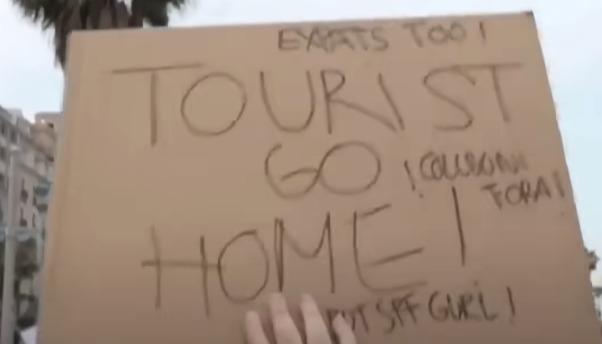 EXPATS TOO!
TOURIST
GO
¡COLLBONI
FORA!
HOME!
PUT SPF GURL!